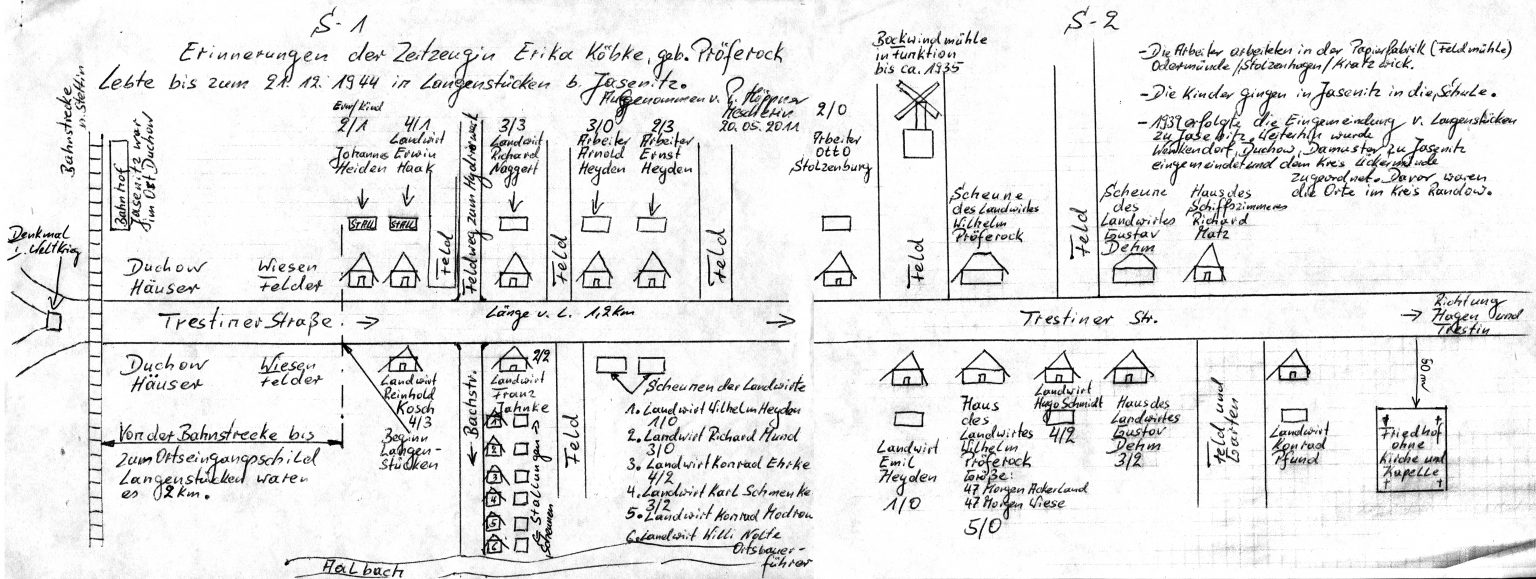 S-1
Erinnerungen der Zeitzeugin Erika Köbke, geb. Pröferock
Lebte bis zum 21.12.1944 in Langenstücken b. Jasenitz.
Aufgenommen v.
20.05.2011
Bahnstrecke
n. Stettin
Bahnhof
Jasenitz war
im Ort Duchow
Denkmal
1. Weltkrieg
Duchow
Häuser
Wiesen
Felder
Erw/Kind
2/1
Johannes
Heiden
STALL
4/1
Landwirt
Erwin
Haak
STALL
Feld
Feldweg zum Hydrierwerk
3/3
Landwirt
Richard
Naggert
Feld
3/0
Arbeiter
Arnold
Heyden
2/3
Arbeiter
Ernst
Heyden
Feld
Trestiner Straße →
Länge v. L. 1,2 km
Duchow
Häuser
Wiesen
Felder
Von der Bahnstrecke bis
zum Ortseingangsschild
Langenstücken waren
es 2 km.
Landwirt
Reinhold
Kosch
4/3
Beginn
Langen-
stücken
← Bachstr.
2/2
Landwirt
Franz
Jahnke
1
2
3
4
5
6
Stallungen
Scheunen
Feld
Scheunen der Landwirte
1. Landwirt Wilhelm Heyden
1/0
2. Landwirt Richard Mund
3/0
3. Landwirt Konrad Ehrke
4/2
4. Landwirt Karl Schmenke
3/2
5. Landwirt Konrad Modrow
6. Landwirt Willi Nolte
Ortsbauer-
führer
Aalbach
S-2
2/0
Arbeiter
Otto
Stolzenburg
Bockwindmühle
in Funktion
bis ca. 1935
Feld
Scheune
des Landwirtes
Wilhelm
Pröferock
Feld
Scheune
des
Landwirtes
Gustav
Dehm
Haus des
Schiffszimmerers
Richard
Matz
- Die Arbeiter arbeiteten in der Papierfabrik (Feldmühle)
Odermünde/Stolzenhagen/Kratzwick.
- Die Kinder gingen in Jasenitz in die Schule.
- 1939 erfolgte die Eingemeindung v. Langenstücken
zu Jasenitz. Weiterhin wurde
Wenkendorf, Duchow, Damuster zu Jasenitz
eingemeindet und dem Kreis Ückermünde
zugeordnet. Davor waren
die Orte im Kreis Randow.
Trestiner Str.
→ Richtung
Hagen und
Trestin
Landwirt
Emil
Heyden
1/0
Haus
des
Landwirtes
Wilhelm
Pröferock
Größe:
47 Morgen Ackerland
47 Morgen Wiese
5/0
Landwirt
Hugo Schmidt
4/2
Haus des
Landwirtes
Gustav
Dehm
3/2
Feld und
Garten
Landwirt
Konrad
Pfund
60 m
Friedhof
ohne
Kirche und
Kapelle